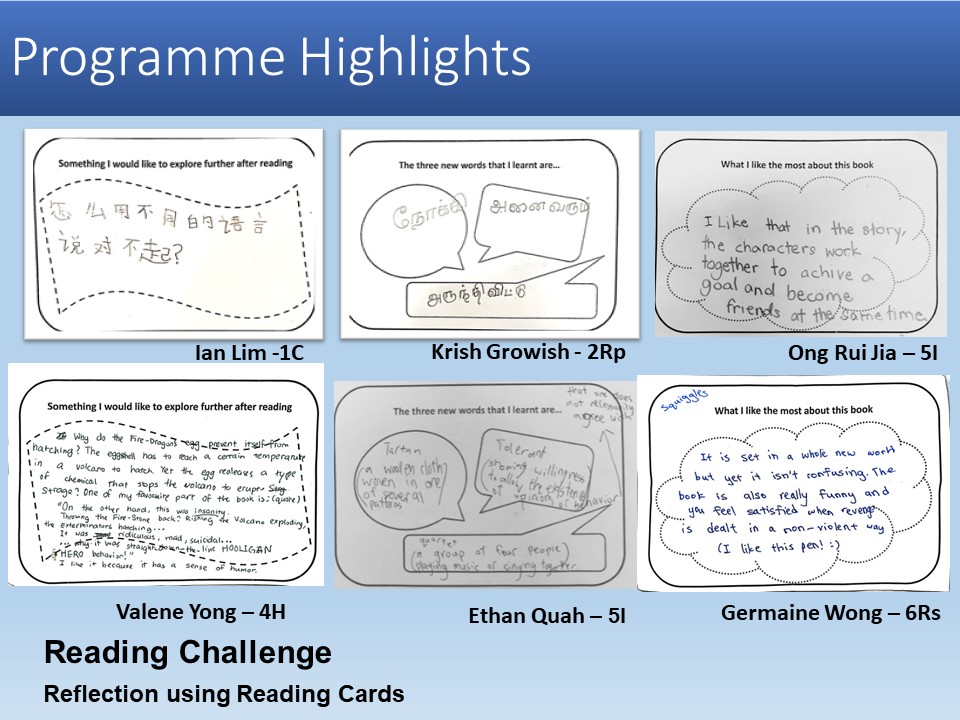 Programme Highlights
Something I would like to explore further after reading
怎么用不同的语言
说对不起?
Ian Lim -1C
The three new words that I learnt are...
நோக்கி
அனைவரும்
அருந்திவிட்டு
Krish Growish - 2Rp
What I like the most about this book
I Like that in the story,
the characters work
together to achive a
goal and become
friends at the same time.
Ong Rui Jia – 5I
Something I would like to explore further after reading
Why do the Fire-Dragons egg prevent itself from
hatching? The eggshell has to reach a certain temperature
in a volcano to hatch. Yet the egg releases a type
of chemical that stops the volcano to erupt.
Strage? One of my favourite part of the book is: (quote)
"On the other hand, this was insanity.
Throwing the Fire-Stone back? Risking the Volcano exploding,
the exterminators hatching...
It was ridiculous, mad, suicidal...
... why it was straight-down-the-line HOOLIGAN
HERO behavior!"
I like it because it has a sense of humor.
Valene Yong – 4H
The three new words that I learnt are...
that one does
not necessarily
agree with
Tartan
(a woolen cloth
woven in one
of several
patterns
Tolerant
(showing willingness
to allow the existence
of opinion or behavior
quartet
(a group of four people)
(playing music or singing together
Ethan Quah – 5I
squiggles
What I like the most about this book
It is set in a whole new world
but yet it isn't confusing. The
book is also really funny and
you feel satisfied when revenge
is dealt in a non-violent way
(I like this pen! :)
Germaine Wong – 6Rs
Reading Challenge
Reflection using Reading Cards